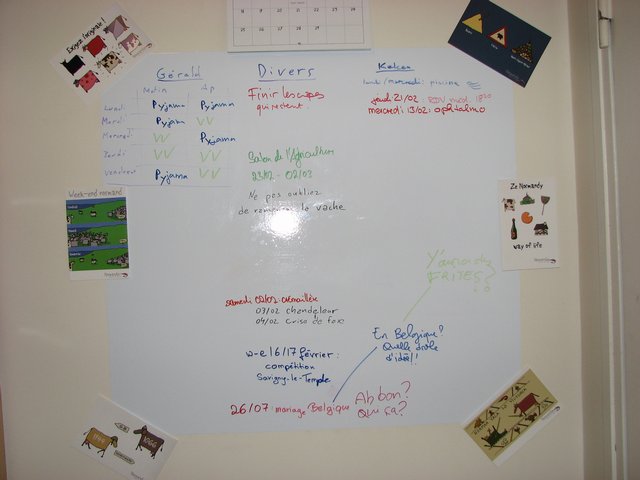 Gérald
Matin Ap
Lundi Pyjama Pyjama
Mardi Pyjam VV
Mercredi VV Pyjama
Jeudi VV VV
Vendredi Pyjama VV
Divers
Finir les crêpes
qui restent!
Salon de l'Agriculture
23/02 - 02/03
Ne pas oubliez
de remercier la vache
samedi 02/02 crémaillère
03/02 chandeleur
04/02 crise de foie
w-e 16/17 février :
compétition
Savigny-le-Temple
26/07 mariage Belgique
Ah bon?
Où ça?
En Belgique?
Quelle drôle
d'idée!!
Y'aura des
FRITES?
lundi/mercredi: piscine
jeudi 21/02 : RDV med. 18
mercredi 13/02: ophtalmo
Week-end normand
Ze Normandy
way of life